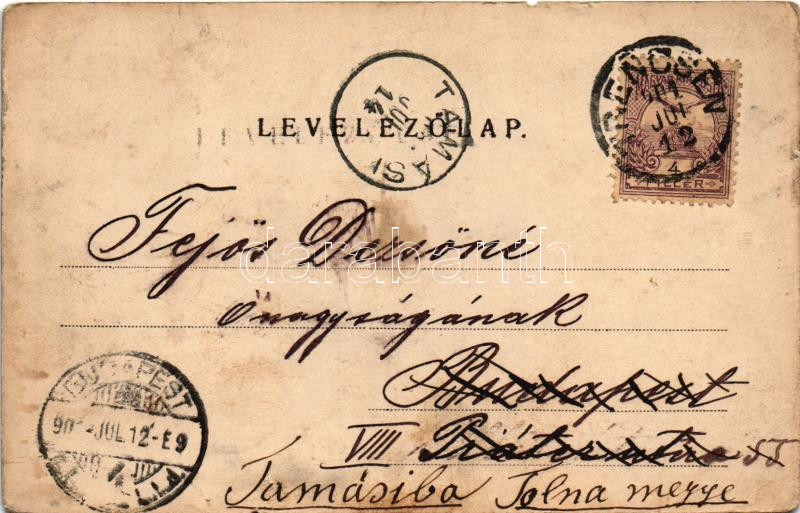 TAMÁSI
JUL.
14
TRENCSÉN
901
JUL
12
4
FILLÉR
LEVELEZŐLAP.
Fejős Dezsőné
önagyságának
Budapest
VIII Práter utca 55
Tamásiba Tolna megye
BUDAPEST
901-JUL.12-E9
darabanth